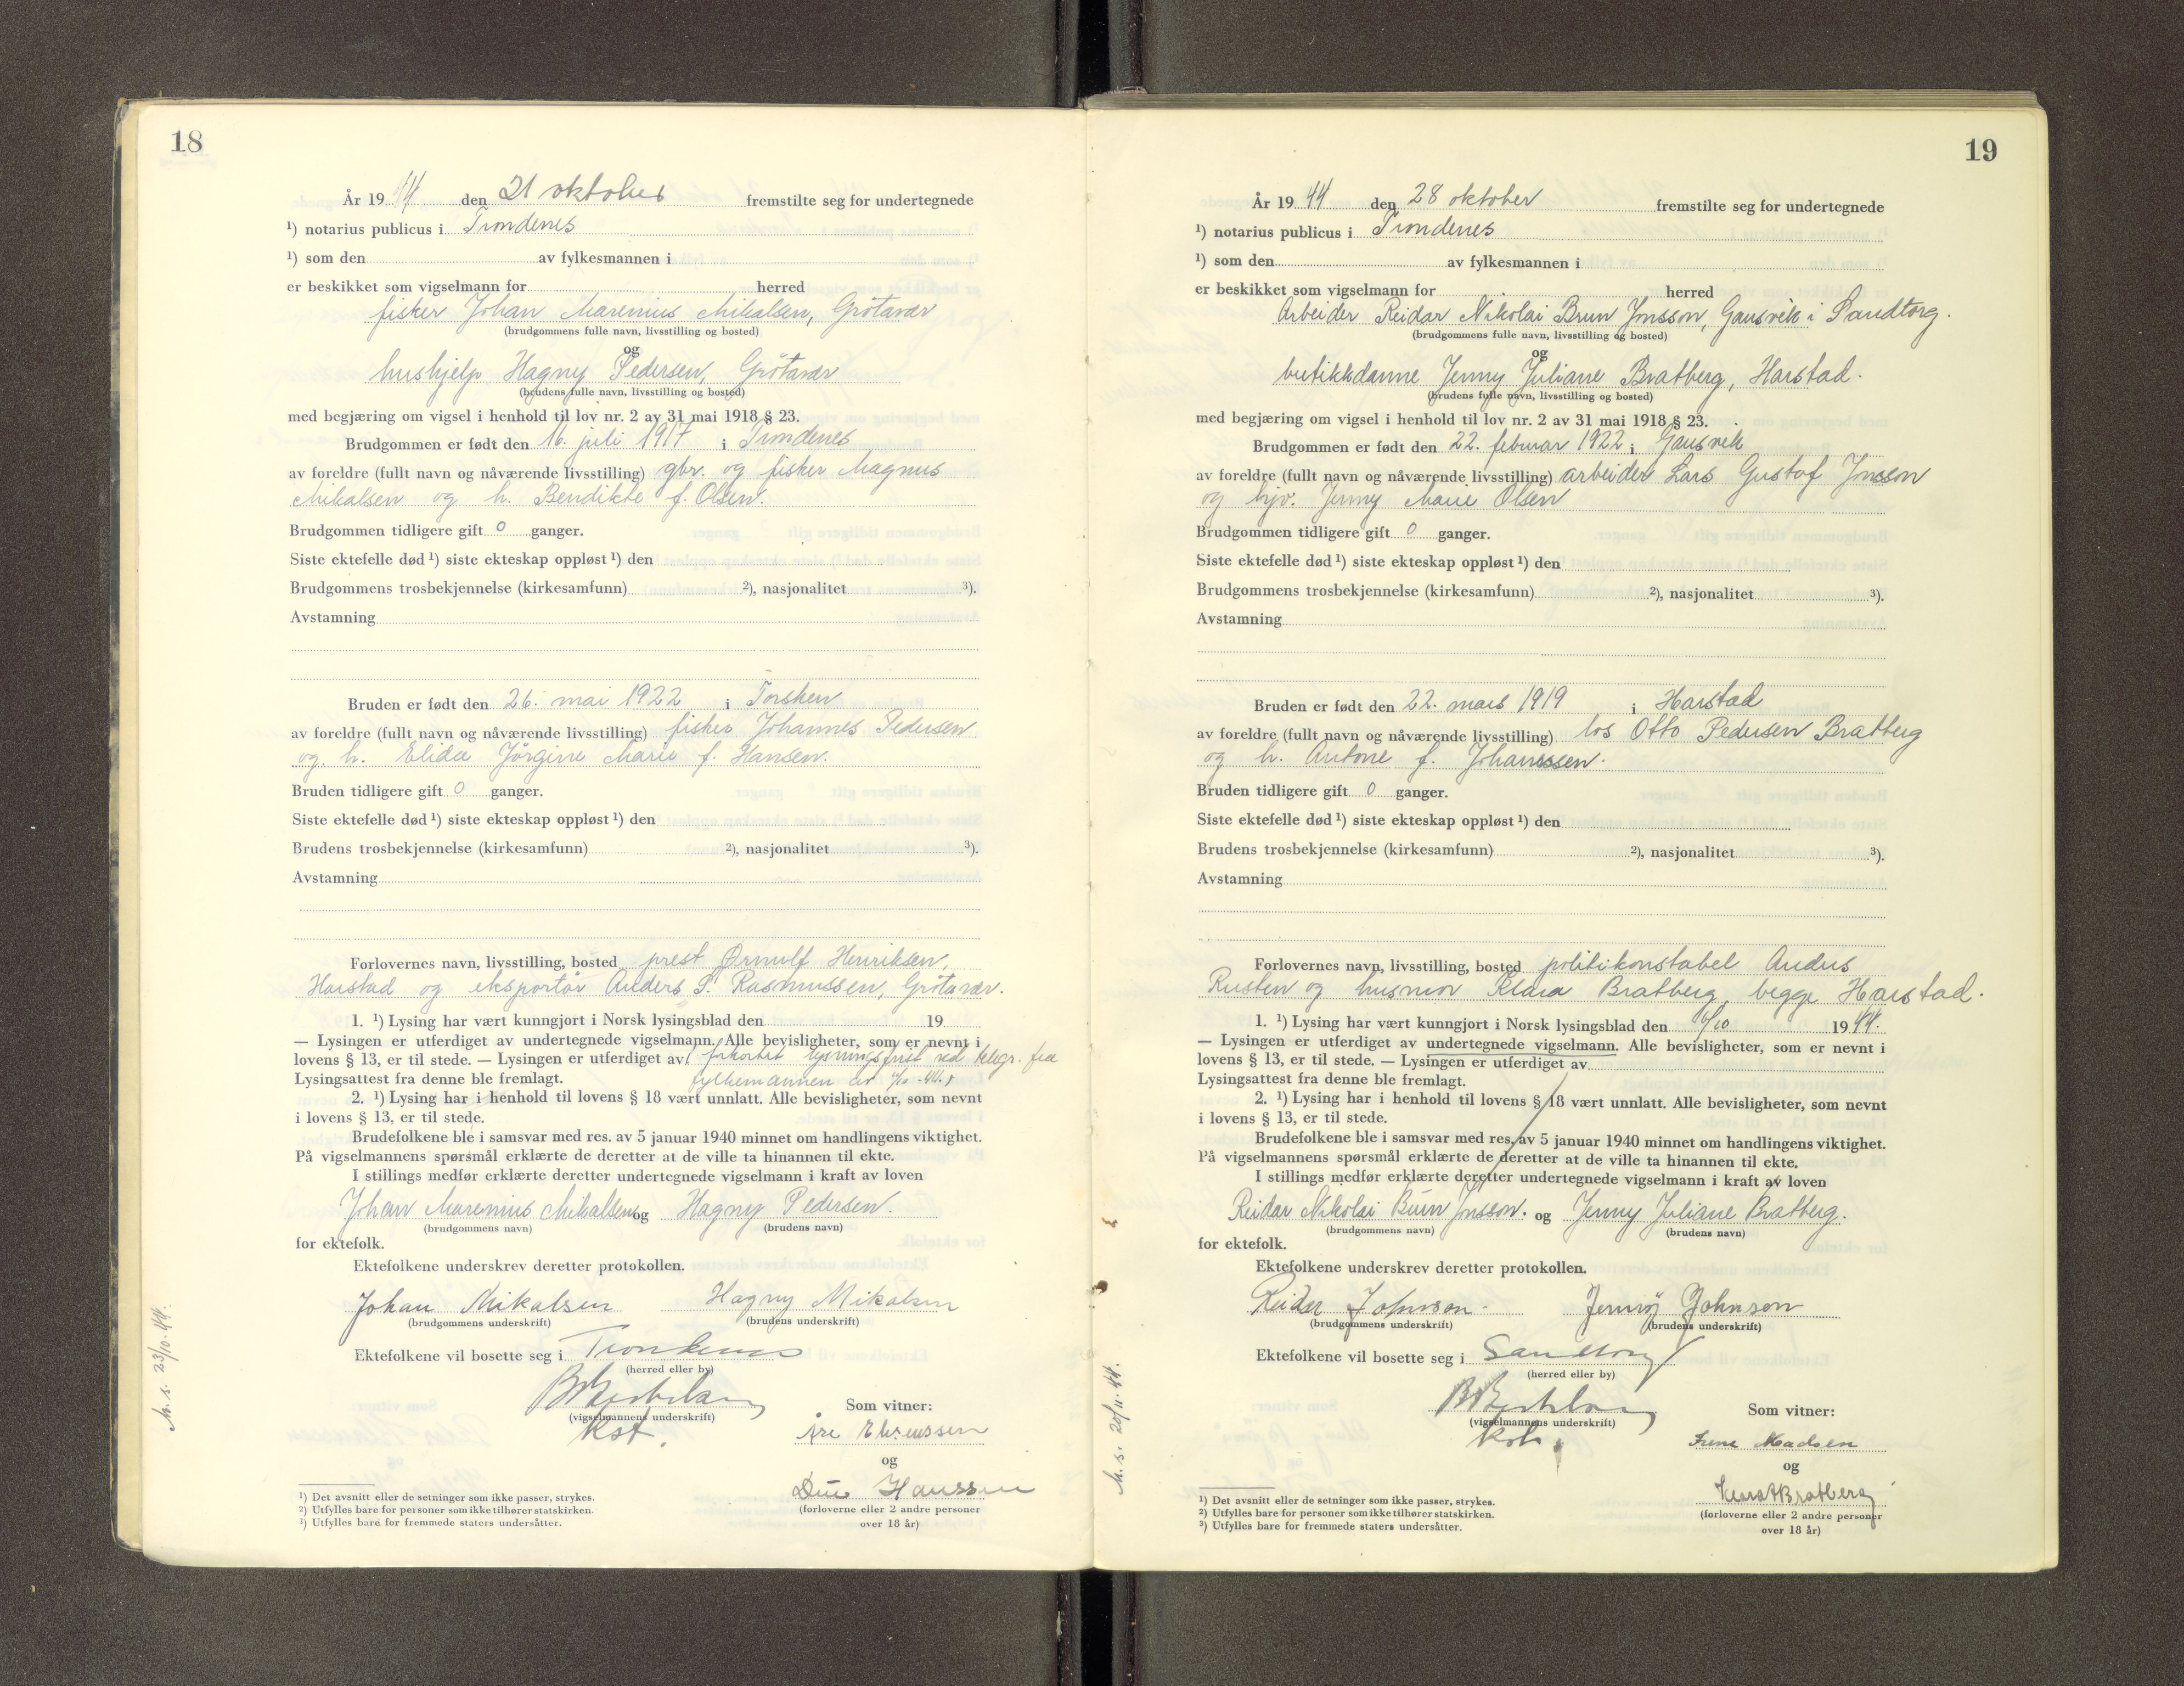 18
År 19 44 den 21 oktober fremstilte seg for undertegnede
¹) notarius publicus i Trondenes
¹) som den av fylkesmannen i
er beskikket som vigselmann for herred
fisker Johan Marenius Mikalsen, Grötavær
(brudgommens fulle navn, livsstilling og bosted)
og
hushjelp Hagny Pedersen, Grötavær
(brudens fulle navn, livsstilling og bosted)
med begjæring om vigsel i henhold til lov nr. 2 av 31 mai 1918 § 23.
Brudgommen er født den 16. juli 1917 i Trondenes
av foreldre (fullt navn og nåværende livsstilling) gbr. og fisker Magnus
Mikalsen og h. Bendikte f. Olsen.
Brudgommen tidligere gift 0 ganger.
Siste ektefelle død ¹) siste ekteskap oppløst ¹) den
Brudgommens trosbekjennelse (kirkesamfunn) ²), nasjonalitet ³).
Avstamning
Bruden er født den 26. mai 1922 i Torsken
av foreldre (fullt navn og nåværende livsstilling) fisker Johannes Pedersen
og h. Elida Jörgine Marie f. Hansen.
Bruden tidligere gift 0 ganger.
Siste ektefelle død ¹) siste ekteskap oppløst ¹) den
Brudens trosbekjennelse (kirkesamfunn) ²), nasjonalitet ³).
Avstamning
Forlovernes navn, livsstilling, bosted prest Ørnulf Henriksen,
Harstad og eksportör Anders S. Rasmussen, Grötavær.
1. ¹) Lysing har vært kunngjort i Norsk lysingsblad den 19
— Lysingen er utferdiget av undertegnede vigselmann. Alle bevisligheter, som er nevnt i
lovens § 13, er til stede. — Lysingen er utferdiget av ( forkortet lysningsfrist ved telegr. fra
Lysingsattest fra denne ble fremlagt. fylkesmannen av /10 -44.)
2. ¹) Lysing har i henhold til lovens § 18 vært unnlatt. Alle bevisligheter, som nevnt
i lovens § 13, er til stede.
Brudefolkene ble i samsvar med res. av 5 januar 1940 minnet om handlingens viktighet.
På vigselmannens spørsmål erklærte de deretter at de ville ta hinannen til ekte.
I stillings medfør erklærte deretter undertegnede vigselmann i kraft av loven
Johan Marenius Mikalsen og Hagny Pedersen.
(brudgommens navn) (brudens navn)
for ektefolk.
Ektefolkene underskrev deretter protokollen.
Johan Mikalsen Hagny Mikalsen
(brudgommens underskrift) (brudens underskrift)
Ektefolkene vil bosette seg i Trondenes
(herred eller by)
(vigselmannens underskrift) Som vitner:
kst.
og
Hanssen
(forloverne eller 2 andre personer
over 18 år)
¹) Det avsnitt eller de setninger som ikke passer, strykes.
²) Utfylles bare for personer som ikke tilhører statskirken.
³) Utfylles bare for fremmede staters undersåtter.
M. s. 23/10.44.
19
År 19 44 den 28 oktober fremstilte seg for undertegnede
¹) notarius publicus i Trondenes
¹) som den av fylkesmannen i
er beskikket som vigselmann for herred
Arbeider Reidar Nikolai Brun Jonsson, Gausvik i Sandtorg.
(brudgommens fulle navn, livsstilling og bosted)
og
butikkdame Jenny Juliane Bratberg, Harstad.
(brudens fulle navn, livsstilling og bosted)
med begjæring om vigsel i henhold til lov nr. 2 av 31 mai 1918 § 23.
Brudgommen er født den 22. februar 1922 i Gausvik
av foreldre (fullt navn og nåværende livsstilling) arbeider Lars Gustof Jonsson
og hjv. Jenny Marie Olsen
Brudgommen tidligere gift 0 ganger.
Siste ektefelle død ¹) siste ekteskap oppløst ¹) den
Brudgommens trosbekjennelse (kirkesamfunn) ²), nasjonalitet ³).
Avstamning
Bruden er født den 22. mars 1919 i Harstad
av foreldre (fullt navn og nåværende livsstilling) los Otto Pedersen Bratberg
og h. Antone f. Johanssen.
Bruden tidligere gift 0 ganger.
Siste ektefelle død ¹) siste ekteskap oppløst ¹) den
Brudens trosbekjennelse (kirkesamfunn) ²), nasjonalitet ³).
Avstamning
Forlovernes navn, livsstilling, bosted politikonstabel Anders
Rusten og husmor Klara Bratberg, begge Harstad.
1. ¹) Lysing har vært kunngjort i Norsk lysingsblad den 6/10 19 44.
— Lysingen er utferdiget av undertegnede vigselmann. Alle bevisligheter, som er nevnt i
lovens § 13, er til stede. — Lysingen er utferdiget av
Lysingsattest fra denne ble fremlagt.
2. ¹) Lysing har i henhold til lovens § 18 vært unnlatt. Alle bevisligheter, som nevnt
i lovens § 13, er til stede.
Brudefolkene ble i samsvar med res. av 5 januar 1940 minnet om handlingens viktighet.
På vigselmannens spørsmål erklærte de deretter at de ville ta hinannen til ekte.
I stillings medfør erklærte deretter undertegnede vigselmann i kraft av loven
Reidar Nikolai Brun Jonsson. og Jenny Juliane Bratberg.
(brudgommens navn) (brudens navn)
for ektefolk.
Ektefolkene underskrev deretter protokollen.
Reidar Johnson. Jenny Johnson
(brudgommens underskrift) (brudens underskrift)
Ektefolkene vil bosette seg i Sandtorg
(herred eller by)
(vigselmannens underskrift) Som vitner:
Irene Madsen
og
Bratberg
(forloverne eller 2 andre personer
over 18 år)
¹) Det avsnitt eller de setninger som ikke passer, strykes.
²) Utfylles bare for personer som ikke tilhører statskirken.
³) Utfylles bare for fremmede staters undersåtter.
M. s. 20/11.44.